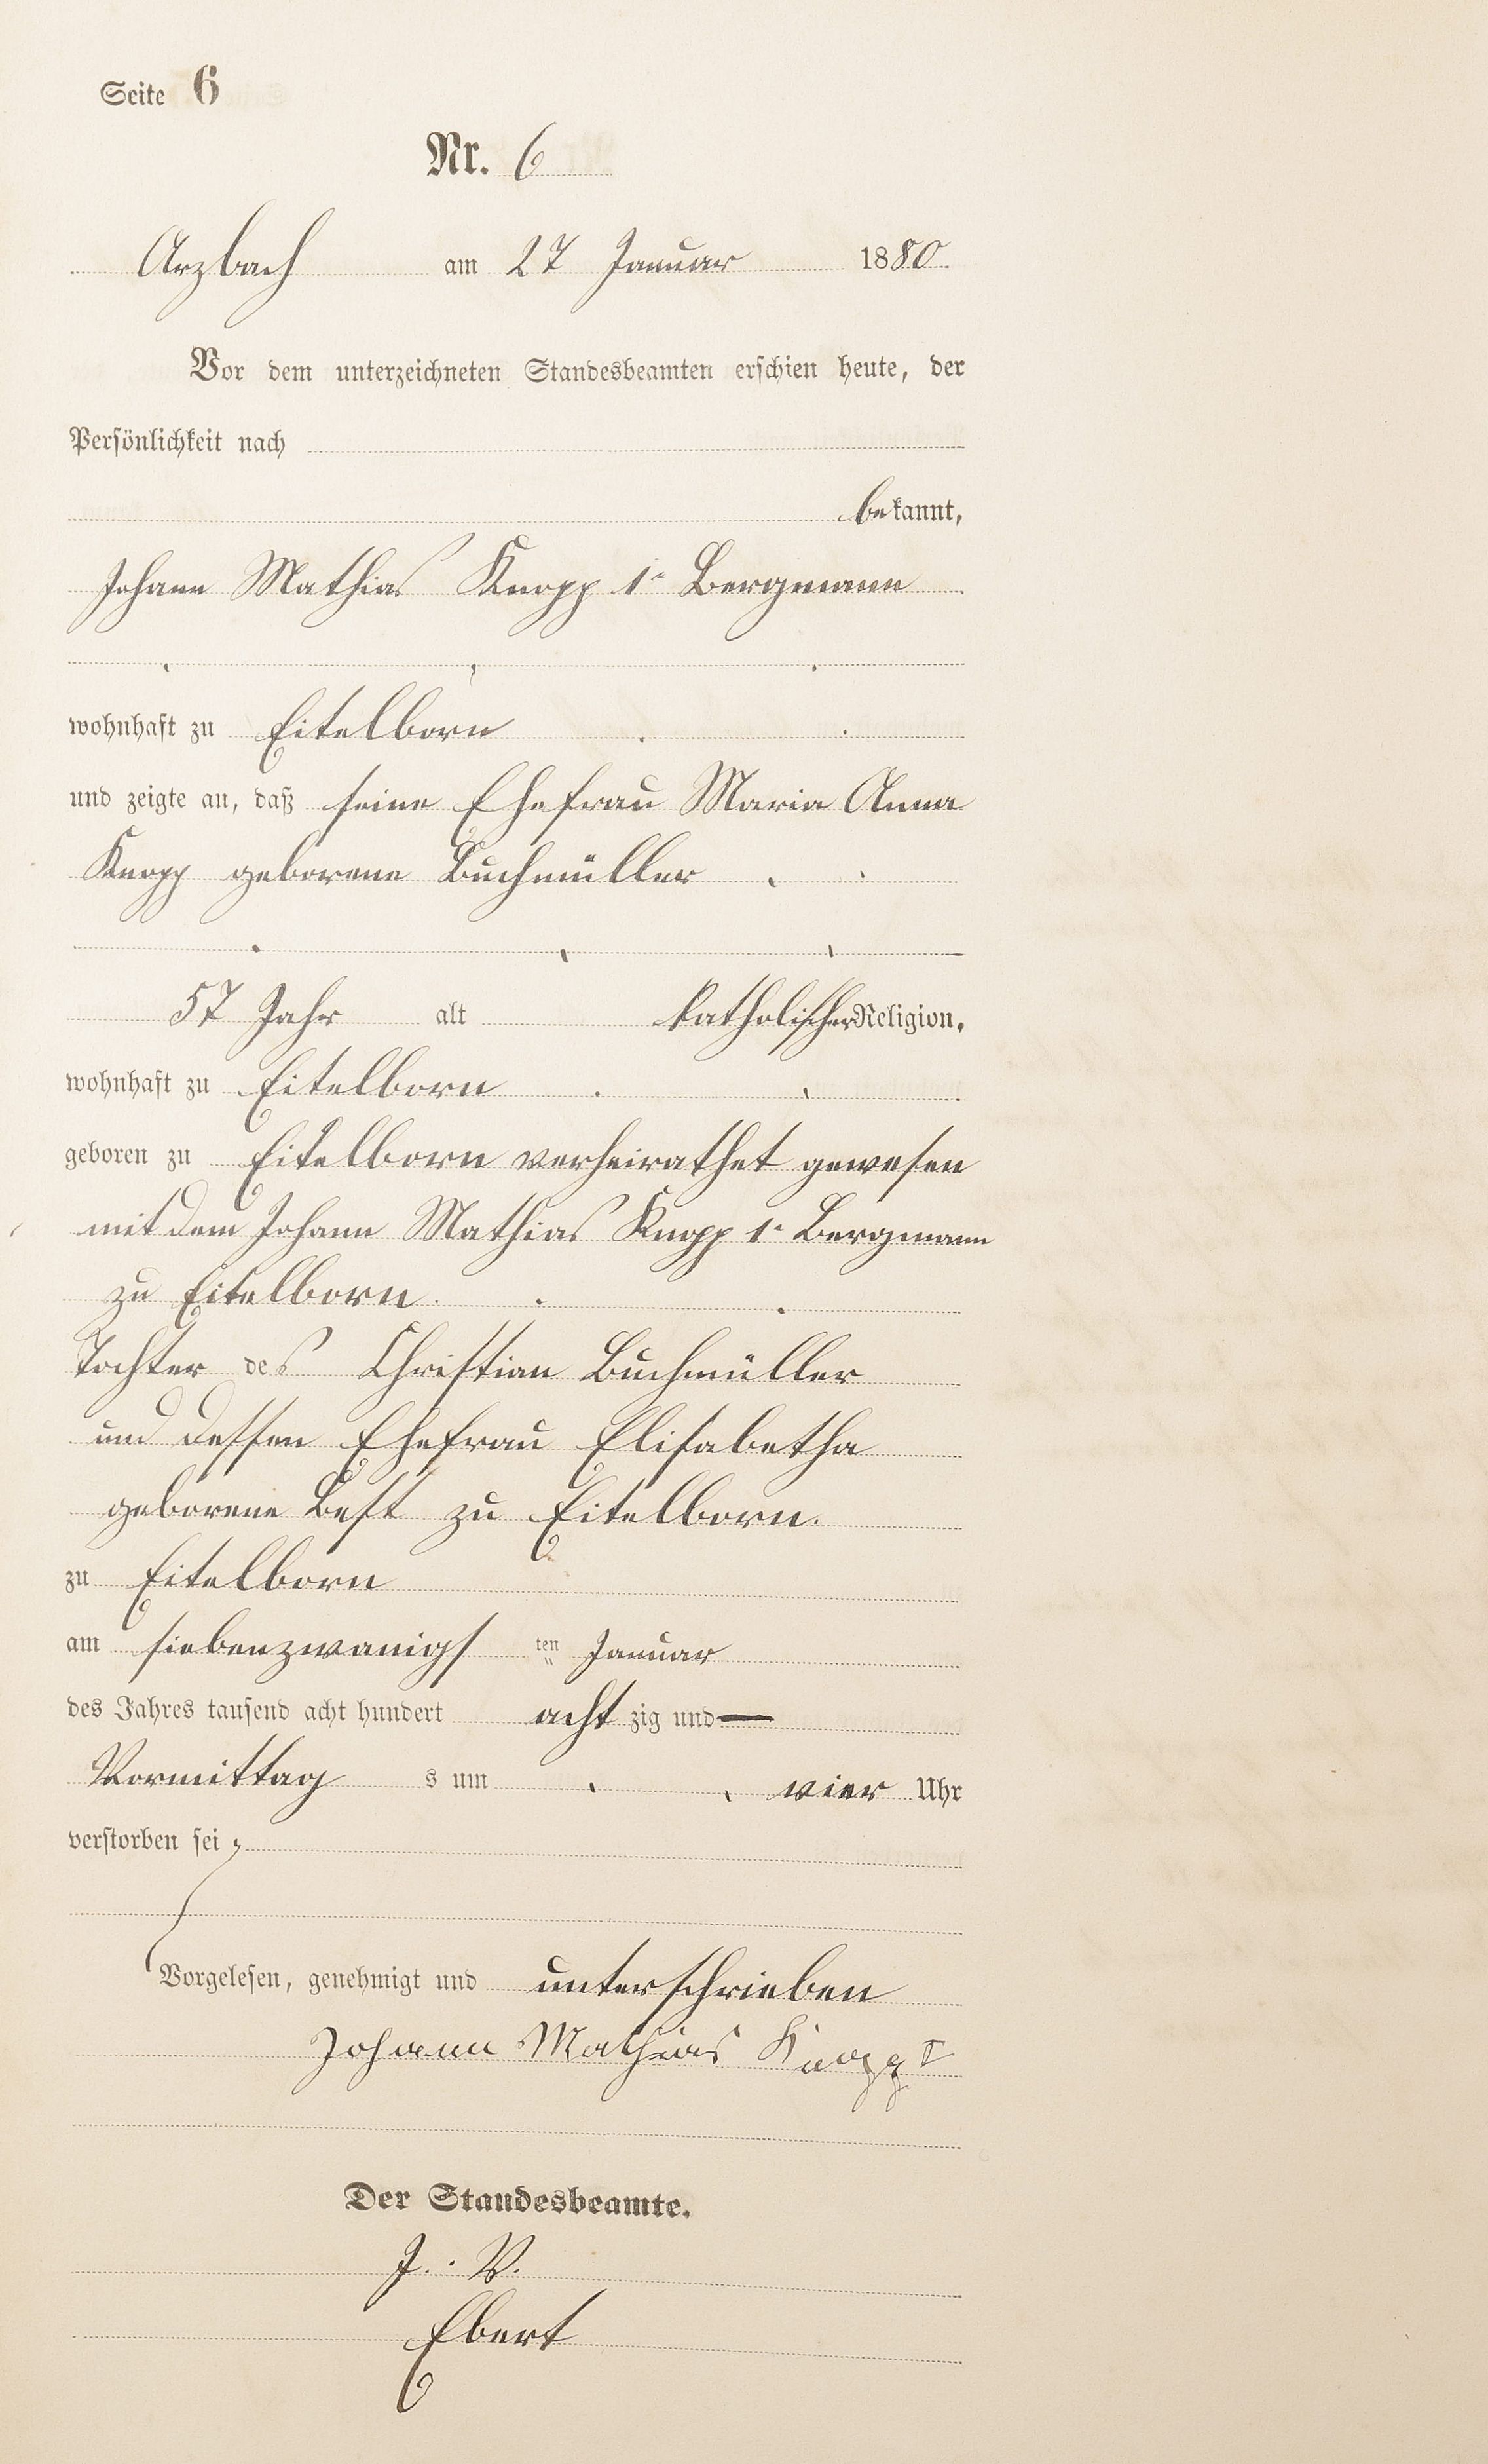 Seite 6
Nr. 6
Arzbach am 27 Januar 1880.
Vor dem unterzeichneten Standesbeamten erschien heute, der
Persönlichkeit nach
bekannt,
Johann Mathias Knopp 1r Bergmann
wohnhaft zu Eitelborn
und zeigte an, daß seine Ehefrau Maria Anna
Knopp geborene Buchmüller
57 Jahr alt katholischer Religion,
wohnhaft zu Eitelborn
geboren zu Eitelborn verheirathet gewesen
mit dem Johann Mathias Knopp 1r Bergmann
zu Eitelborn.
Tochter des Christian Buchmüller
und dessen Ehefrau Elisabetha
geborene Best zu Eitelborn.
zu Eitelborn
am siebenzwanigs ten Januar
des Jahres tausend acht hundert acht zig und —
Vormittag s um vier Uhr
verstorben sei,
Vorgelesen, genehmigt und unterschrieben
Johann Mathias Knopp I
Der Standesbeamte.
J. V.
Ebert